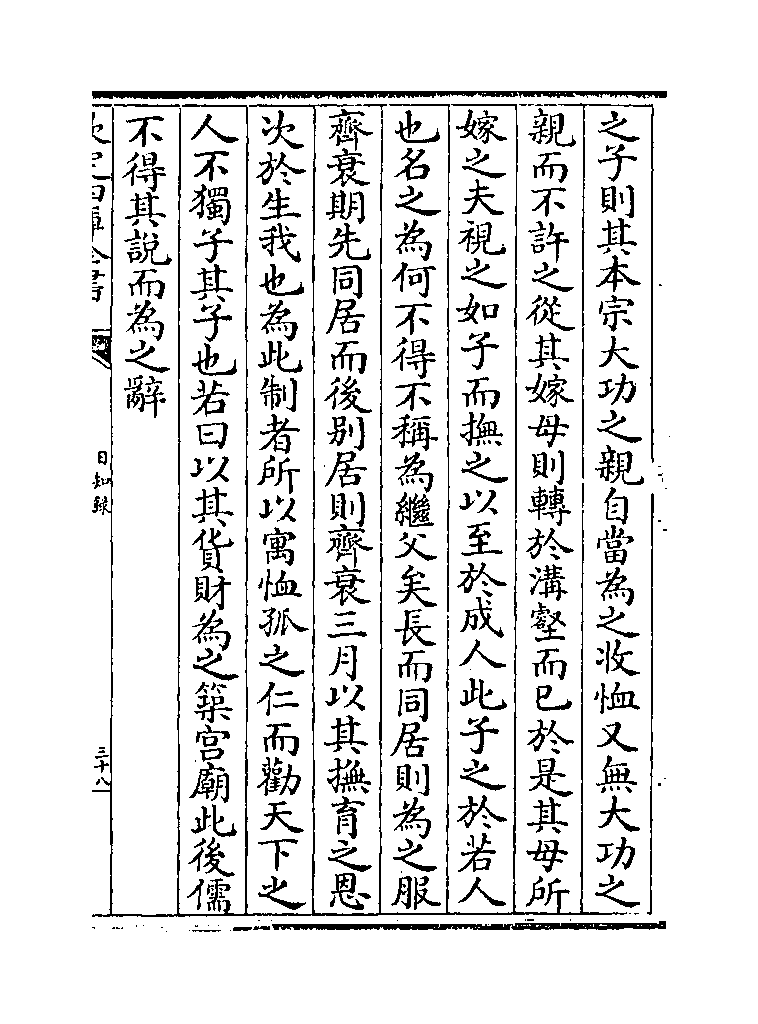 之子則其本宗大功之親自當為之收恤又無大功之
親而不許之從其嫁母則轉於溝壑而已於是其母所
嫁之夫視之如子而撫之以至於成人此子之於若人
也名之為何不得不稱為繼父矣長而同居則為之服
齊衰期先同居而後别居則齊衰三月以其撫育之恩
次於生我也為此制者所以寓恤孤之仁而勸天下之
人不獨子其子也若曰以其貨財為之築宫廟此後儒
不得其説而為之辭
欽定四庫全書
日知録
三十八